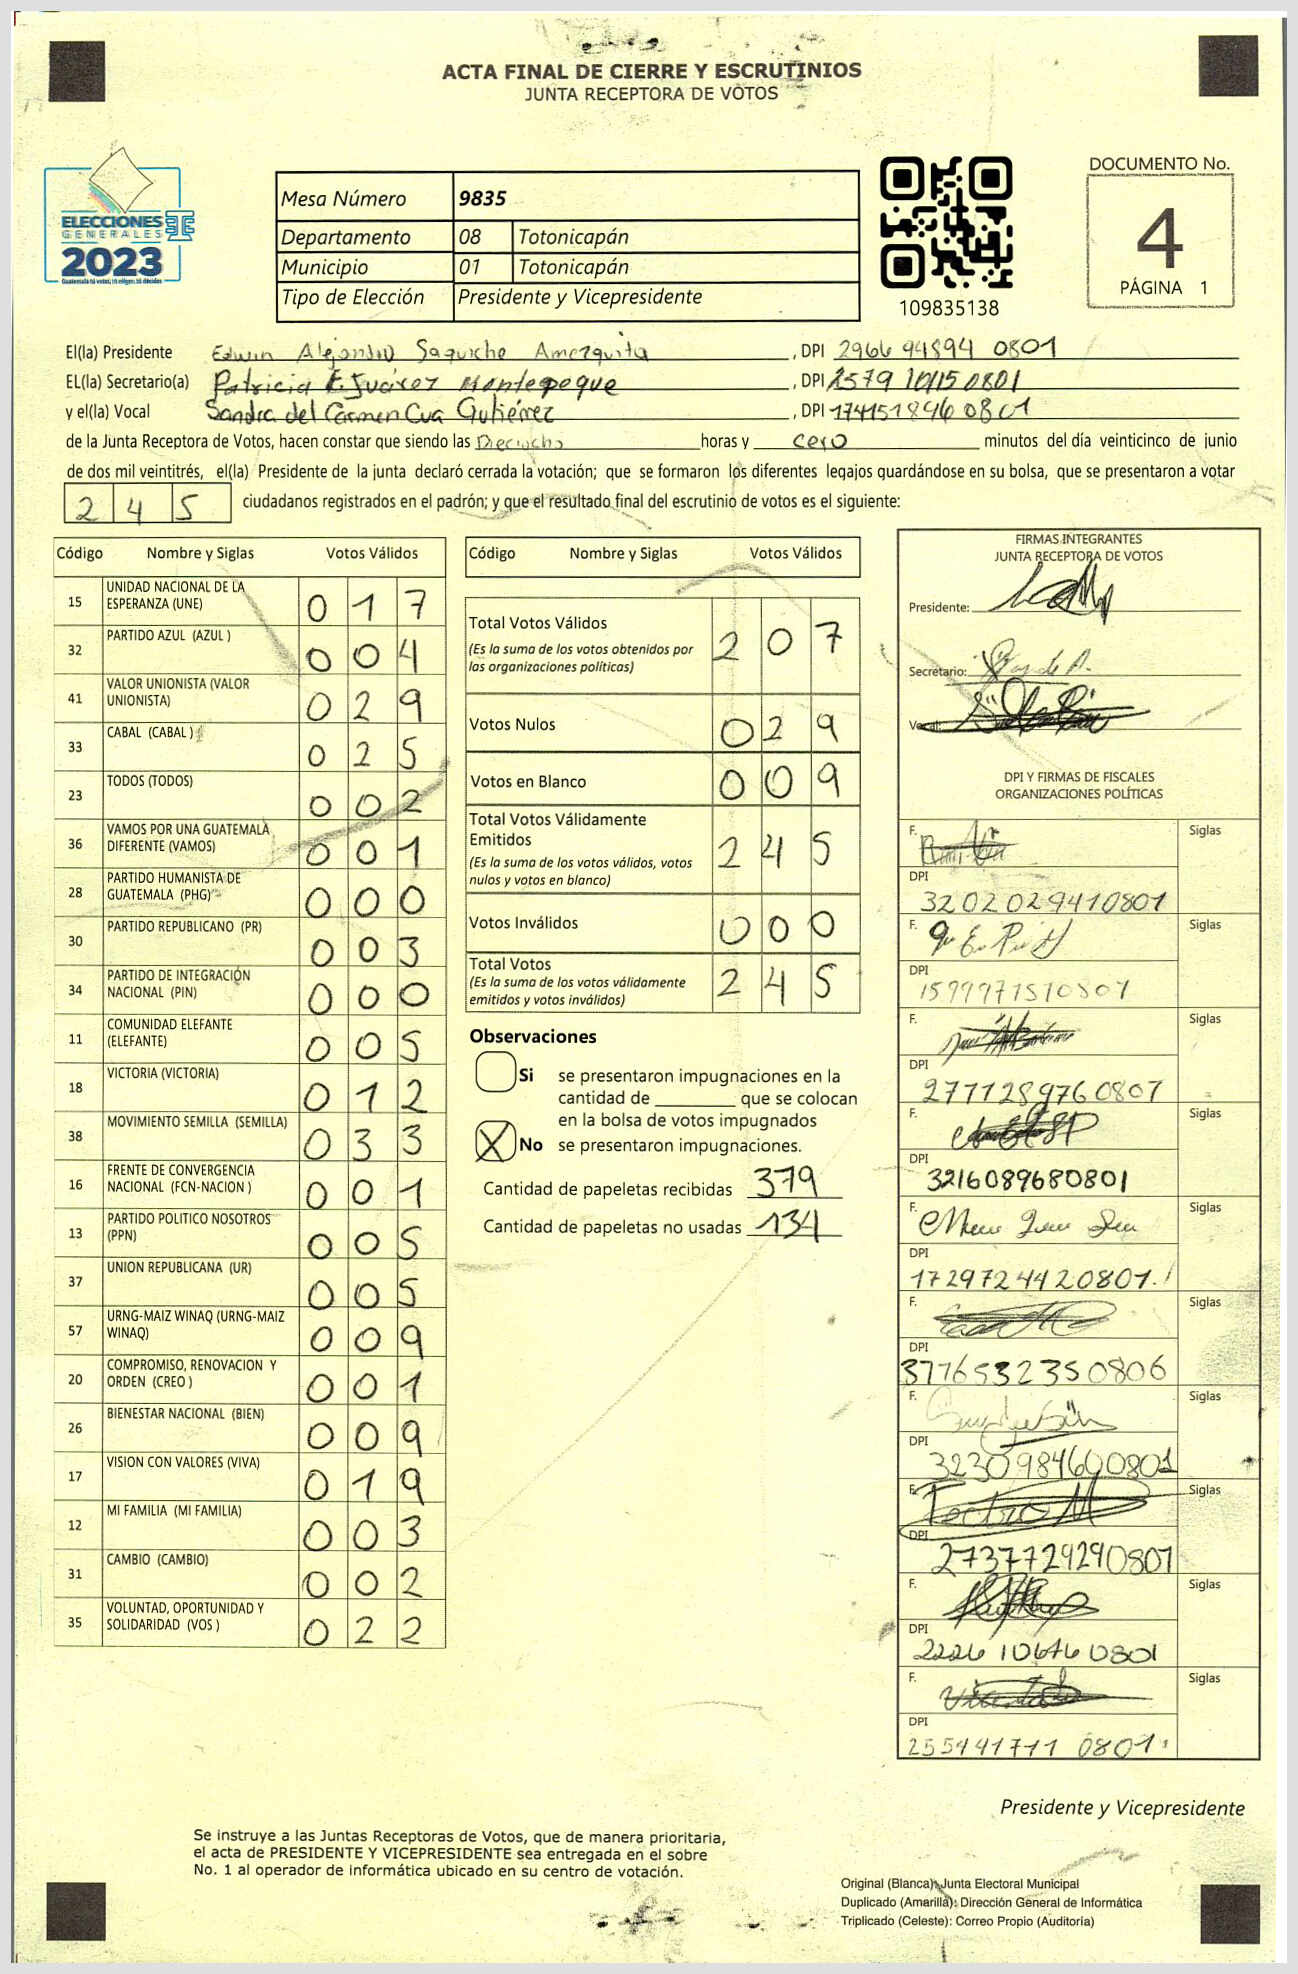 ACTA FINAL DE CIERRE Y ESCRUTINIOS
JUNTA RECEPTORA DE VOTOS
ELECCIONES
GENERALES
2023
Mesa Número 9835
Departamento 08 Totonicapán
Municipio 01 Totonicapán
Tipo de Elección Presidente y Vicepresidente
109835138
DOCUMENTO No.
4
PÁGINA 1
El(la) Presidente Edwin Alejandro Saquiche Amezquita, DPI 2966 94894 0801
EL(la) Secretario(a) Patricia E. Juárez Montepeque, DPI 2579 10115 0801
y el(la) Vocal Sandra del Carmen Cua Gutiérrez, DPI 174151896 0801
de la Junta Receptora de Votos, hacen constar que siendo las Dieciocho horas y cero minutos del día veinticinco de junio
de dos mil veintitrés, el(la) Presidente de la junta declaró cerrada la votación; que se formaron los diferentes legajos guardándose en su bolsa, que se presentaron a votar
245 ciudadanos registrados en el padrón; y que el resultado final del escrutinio de votos es el siguiente:
Código Nombre y Siglas Votos Válidos
15 UNIDAD NACIONAL DE LA ESPERANZA (UNE) 017
32 PARTIDO AZUL (AZUL ) 004
41 VALOR UNIONISTA (VALOR UNIONISTA) 029
33 CABAL (CABAL ) 025
23 TODOS (TODOS) 002
36 VAMOS POR UNA GUATEMALA DIFERENTE (VAMOS) 001
28 PARTIDO HUMANISTA DE GUATEMALA (PHG) 000
30 PARTIDO REPUBLICANO (PR) 003
34 PARTIDO DE INTEGRACIÓN NACIONAL (PIN) 000
11 COMUNIDAD ELEFANTE (ELEFANTE) 005
18 VICTORIA (VICTORIA) 012
38 MOVIMIENTO SEMILLA (SEMILLA) 033
16 FRENTE DE CONVERGENCIA NACIONAL (FCN-NACION ) 001
13 PARTIDO POLITICO NOSOTROS (PPN) 005
37 UNION REPUBLICANA (UR) 005
57 URNG-MAIZ WINAQ (URNG-MAIZ WINAQ) 009
20 COMPROMISO, RENOVACION Y ORDEN (CREO ) 001
26 BIENESTAR NACIONAL (BIEN) 009
17 VISION CON VALORES (VIVA) 019
12 MI FAMILIA (MI FAMILIA) 003
31 CAMBIO (CAMBIO) 002
35 VOLUNTAD, OPORTUNIDAD Y SOLIDARIDAD (VOS ) 022
Código Nombre y Siglas Votos Válidos
Total Votos Válidos 207
(Es la suma de los votos obtenidos por
las organizaciones políticas)
Votos Nulos 029
Votos en Blanco 009
Total Votos Válidamente
Emitidos 245
(Es la suma de los votos válidos, votos
nulos y votos en blanco)
Votos Inválidos 000
Total Votos 245
(Es la suma de los votos válidamente
emitidos y votos inválidos)
Observaciones
Si se presentaron impugnaciones en la
cantidad de ________ que se colocan
en la bolsa de votos impugnados
X No se presentaron impugnaciones.
Cantidad de papeletas recibidas 379
Cantidad de papeletas no usadas 134
FIRMAS INTEGRANTES
JUNTA RECEPTORA DE VOTOS
Presidente:
Secretario:
Vocal:
DPI Y FIRMAS DE FISCALES
ORGANIZACIONES POLÍTICAS
F. Siglas
DPI
3202029410801
F. Siglas
DPI
1599971510801
F. Siglas
DPI
2771289760807
F. Siglas
DPI
3216089680801
F. Siglas
DPI
1729724420801
F. Siglas
DPI
3776532350806
F. Siglas
DPI
3230984600801
F. Siglas
DPI
2737729290801
F. Siglas
DPI
2226106760801
F. Siglas
DPI
255441711 0801
Presidente y Vicepresidente
Se instruye a las Juntas Receptoras de Votos, que de manera prioritaria,
el acta de PRESIDENTE Y VICEPRESIDENTE sea entregada en el sobre
No. 1 al operador de informática ubicado en su centro de votación.
Original (Blanca): Junta Electoral Municipal
Duplicado (Amarilla): Dirección General de Informática
Triplicado (Celeste): Correo Propio (Auditoría)